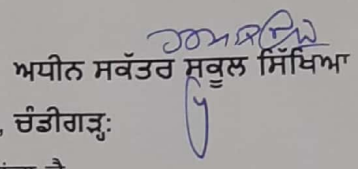 ਅਧੀਨ ਸਕੱਤਰ ਸਕੂਲ ਸਿੱਖਿਆ
, ਚੰਡੀਗੜ੍ਹ: